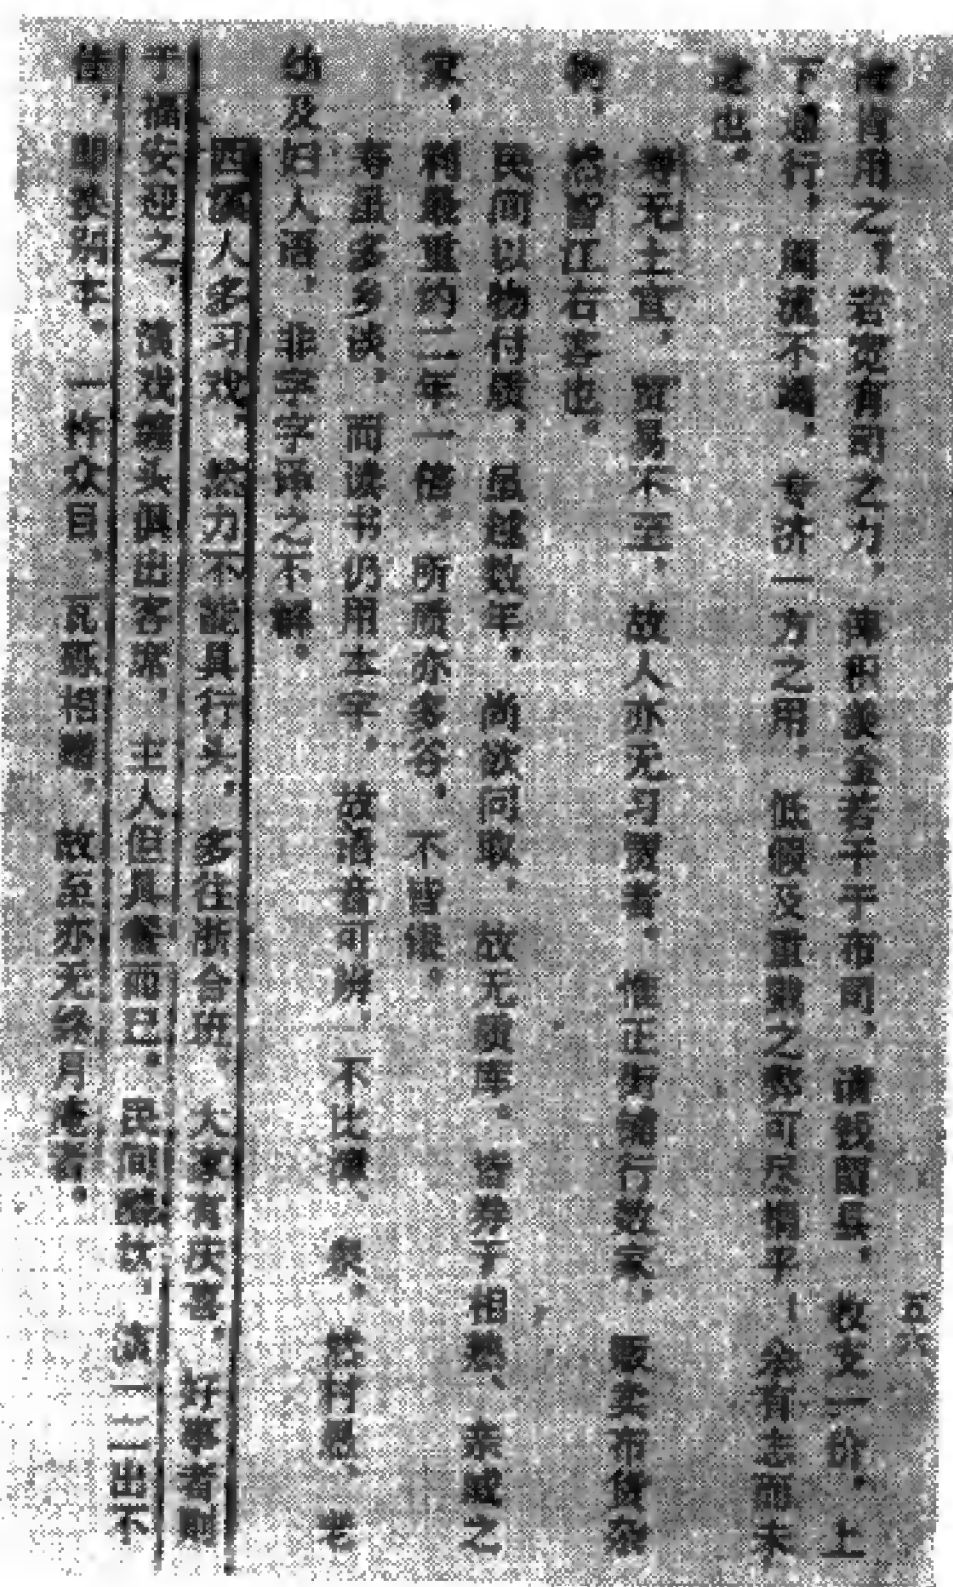 肯用之，若宽有司之力，再积羡金若干于布司，请钱留县，收支一价，上
下通行，周流不竭，专济一方之用，低假及重戥之弊可尽捐乎！余有志而未
也。
寿无土宜，贸易不至，故人亦无习贾者。惟正街铺行数家，贩卖布货杂
物，皆江右客也。
民间以物付质，虽越数年，尚欲问取，故无质库。皆寿于相熟、亲戚之
家，利最重约二年一倍。所质亦多谷，不皆银。
寿虽多乡谈，而读书仍用本字，故语音可辨，不比漳、泉。若村愚、老
幼及妇人语，非字字译之不解。
四隅人多习戏，然力不能具行头，多往浙合班，大家有庆喜，好事者则
于福安迎之，演戏缠头俱出客席，主人但具餐而已。民间嫁女，演一二出不
佳，即换别本，一炸众目，故至亦无终月淹者。
五六